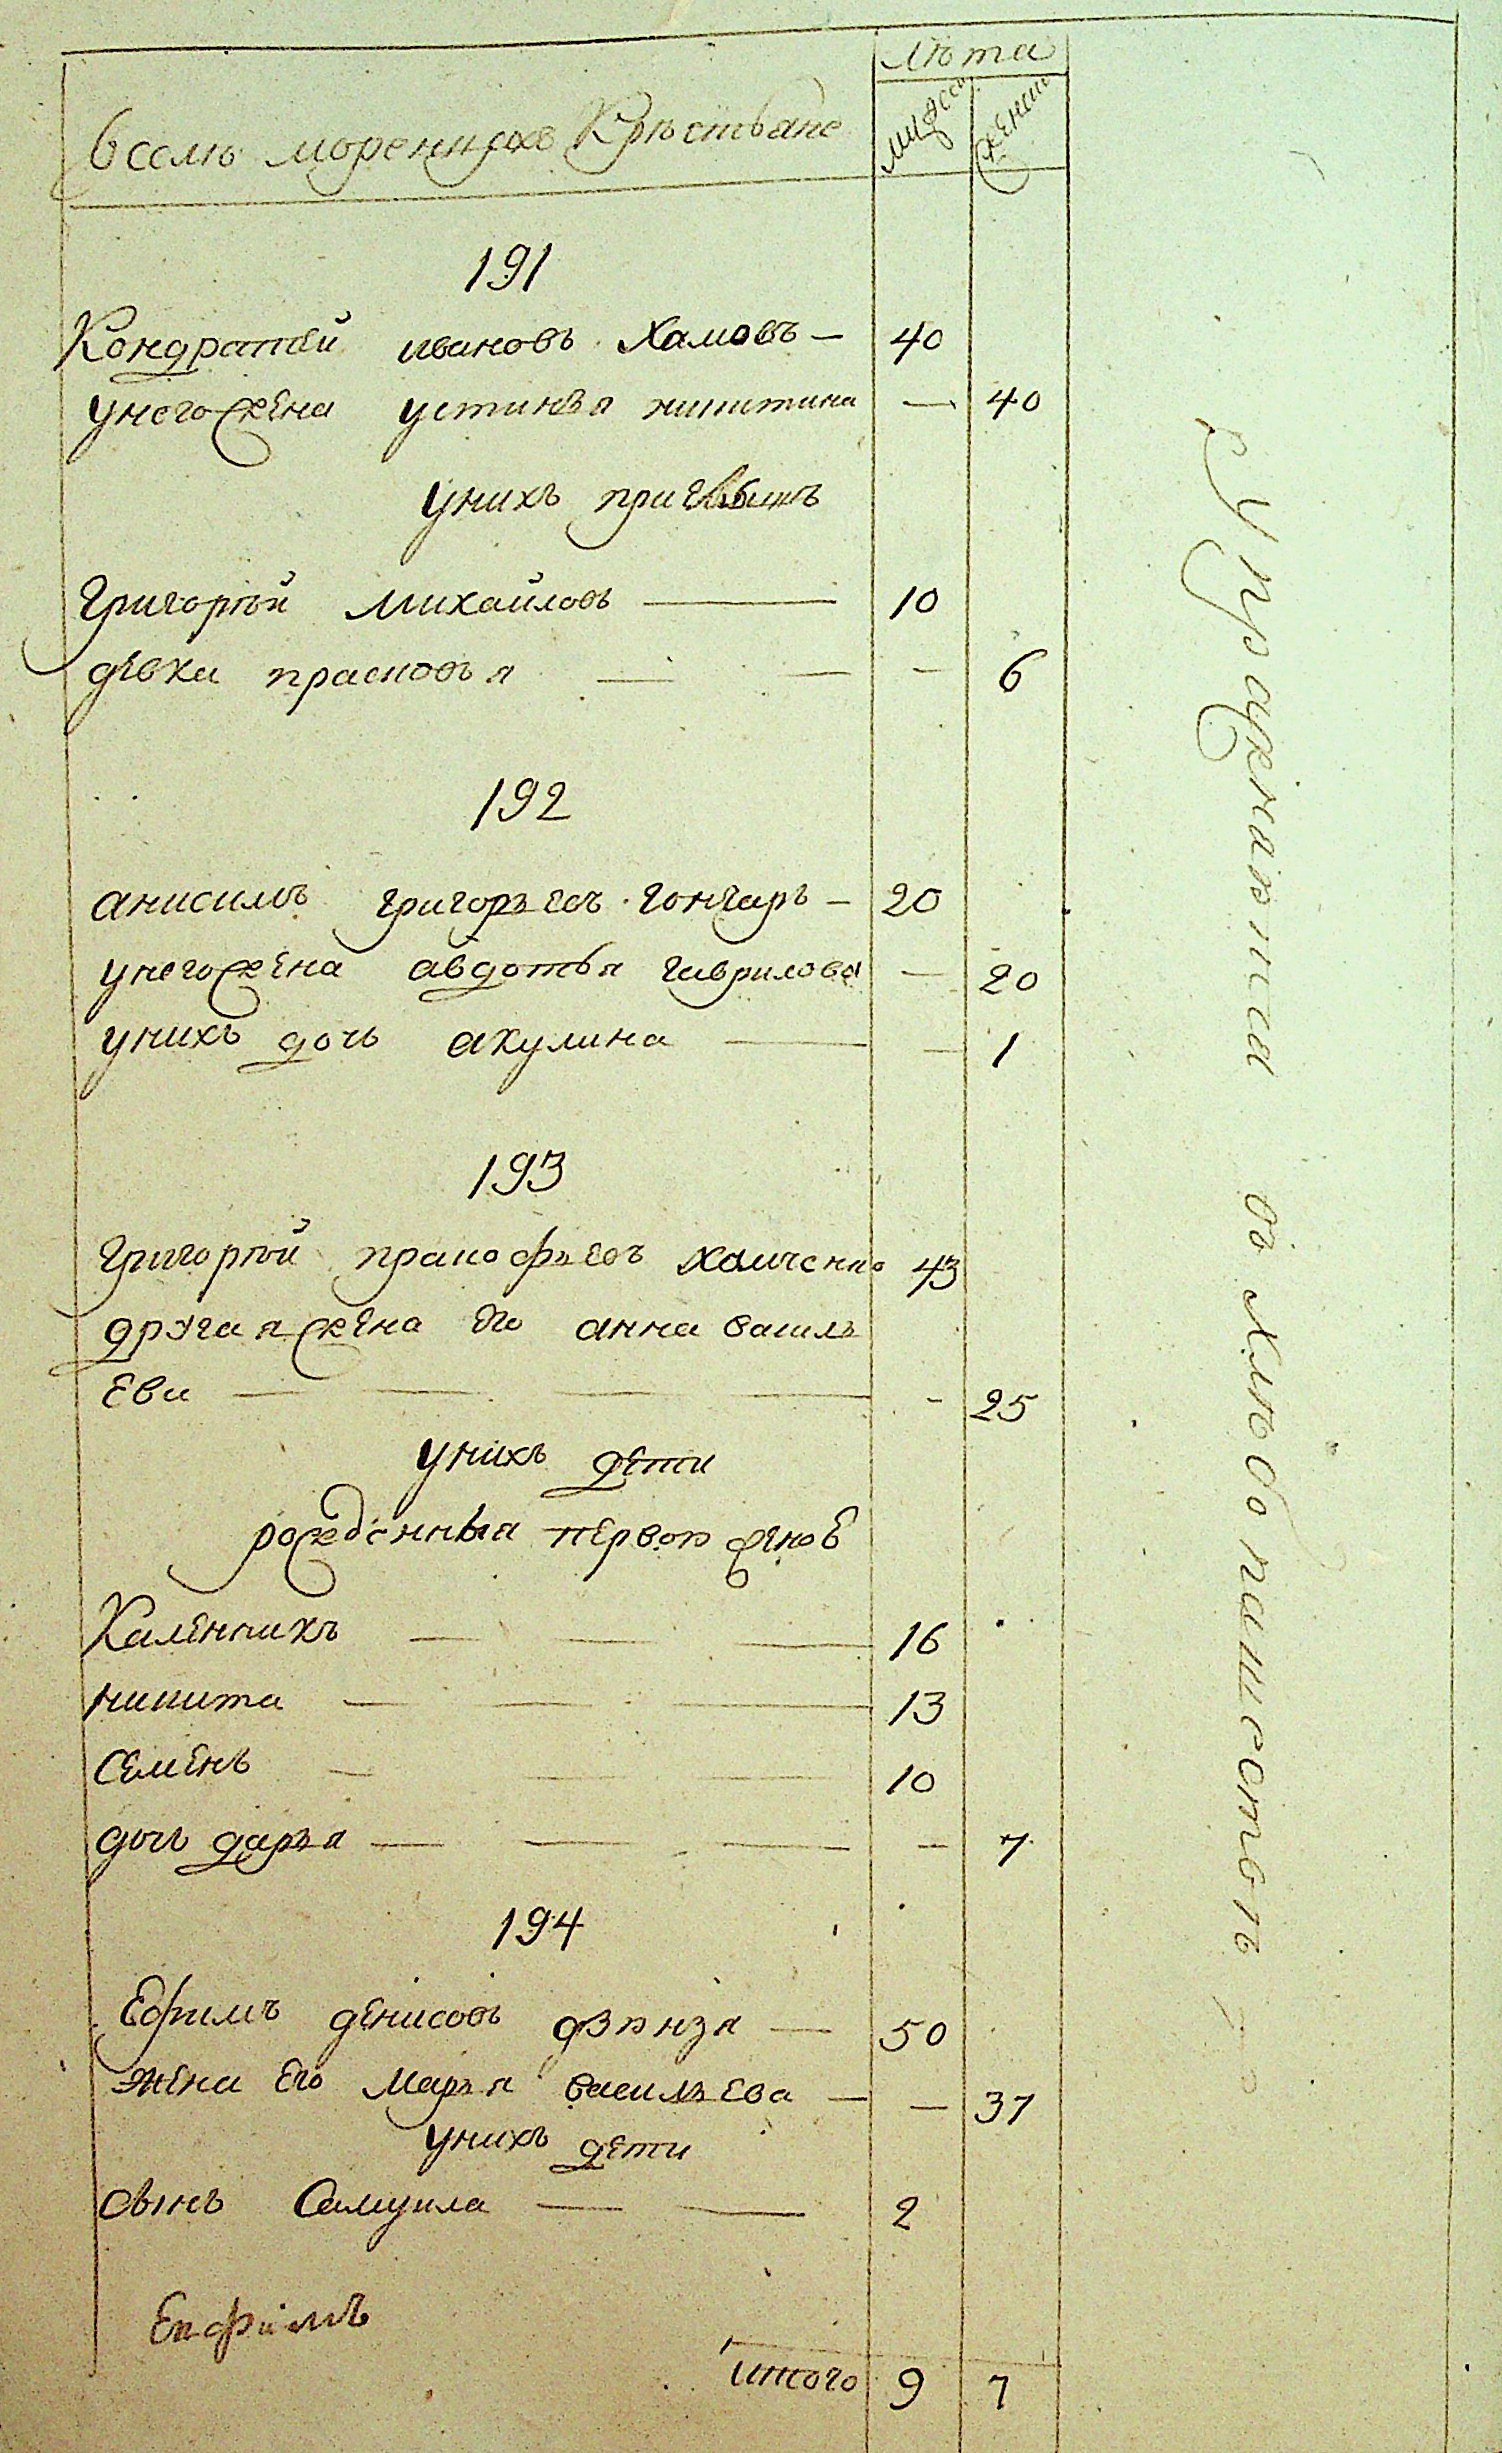 лѣта
Вселѣ моренцяхъ Крѣстьяне
мужеск
женск
191
Кондратей ивановъ Хамовъ — 40
унего жена устинья никитина — 40
унихъ приемышъ
Григорѣй Михайловъ — 10
девка прасковья — — — 6
192
анисимъ григорьевъ гончаръ — 20
унего жена авдотья гаврилова — 20
унихъ дочь акулина — — 1
193
Григорѣй пракофьевъ хамченко 43
другая жена его анна василь
ева — — — — - 25
унихъ дети
рожденныя первои женоѣ
Каленникъ — — — 16
никита — — — 13
Семенъ — — — 10
дочь дарья — — — — 7
194
Ефимъ денисовъ дзюнзя — 50
жена его марья васильева — — 37
унихъ дети
сынъ Самуила — — 2
итого 9 7
упражняютца въ хлѣбопашестве